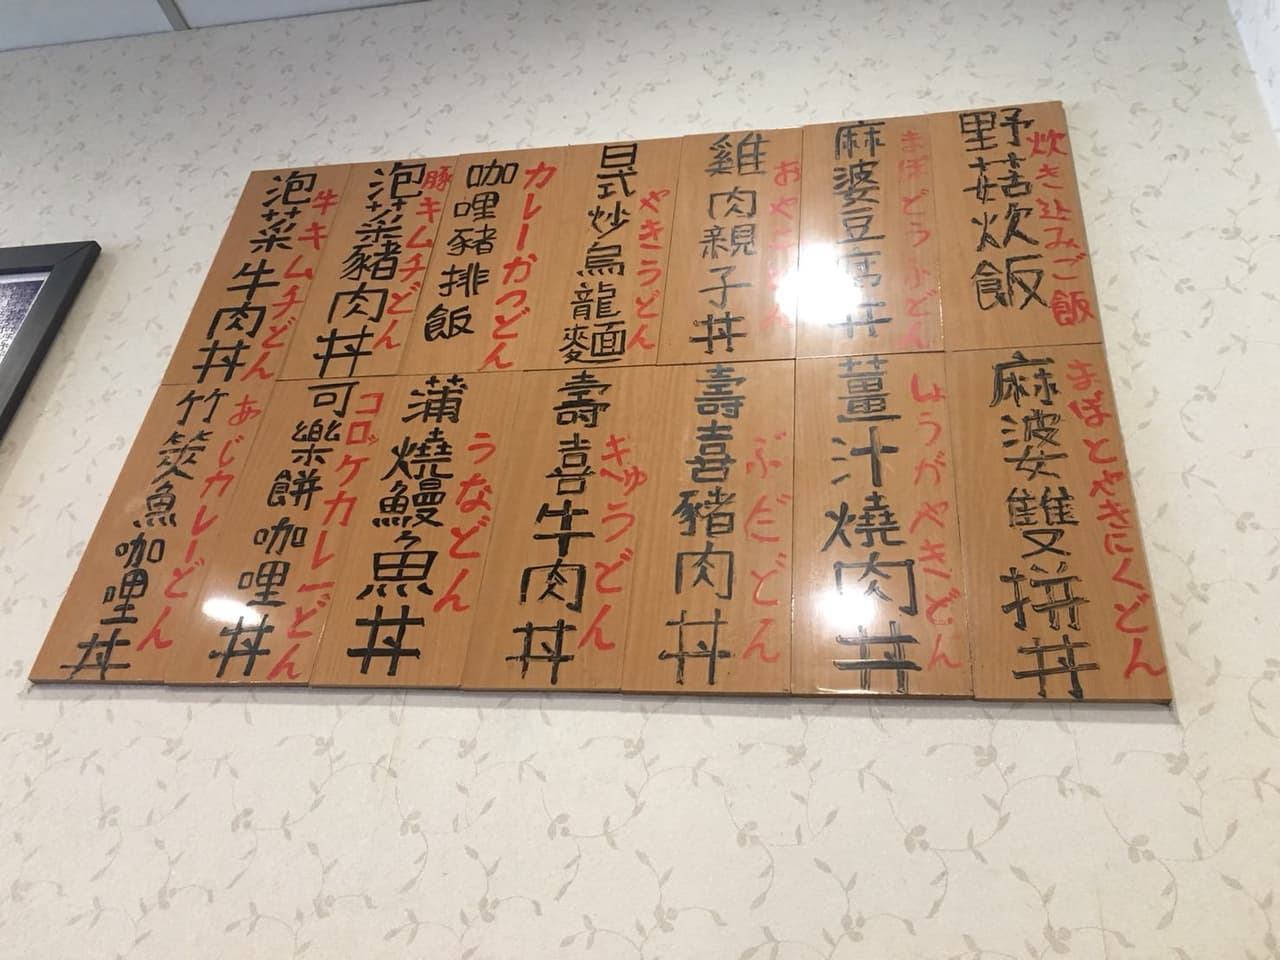 野菇炊飯
炊き込みご飯
麻婆豆腐丼
まぼどうふどん
雞肉親子丼
おやこどん
日式炒烏龍麵
やきうどん
咖哩豬排飯
カレーかつどん
泡菜豬肉丼
豚キムチどん
泡菜牛肉丼
牛キムチどん
麻婆雙拼丼
まぼとやきにくどん
薑汁燒肉丼
しょうがやきどん
壽喜豬肉丼
ぶただどん
壽喜牛肉丼
ぎゅうどん
蒲燒鰻魚丼
うなどん
可樂餅咖哩丼
コロッケカレーどん
竹筴魚咖哩丼
あじカレーどん